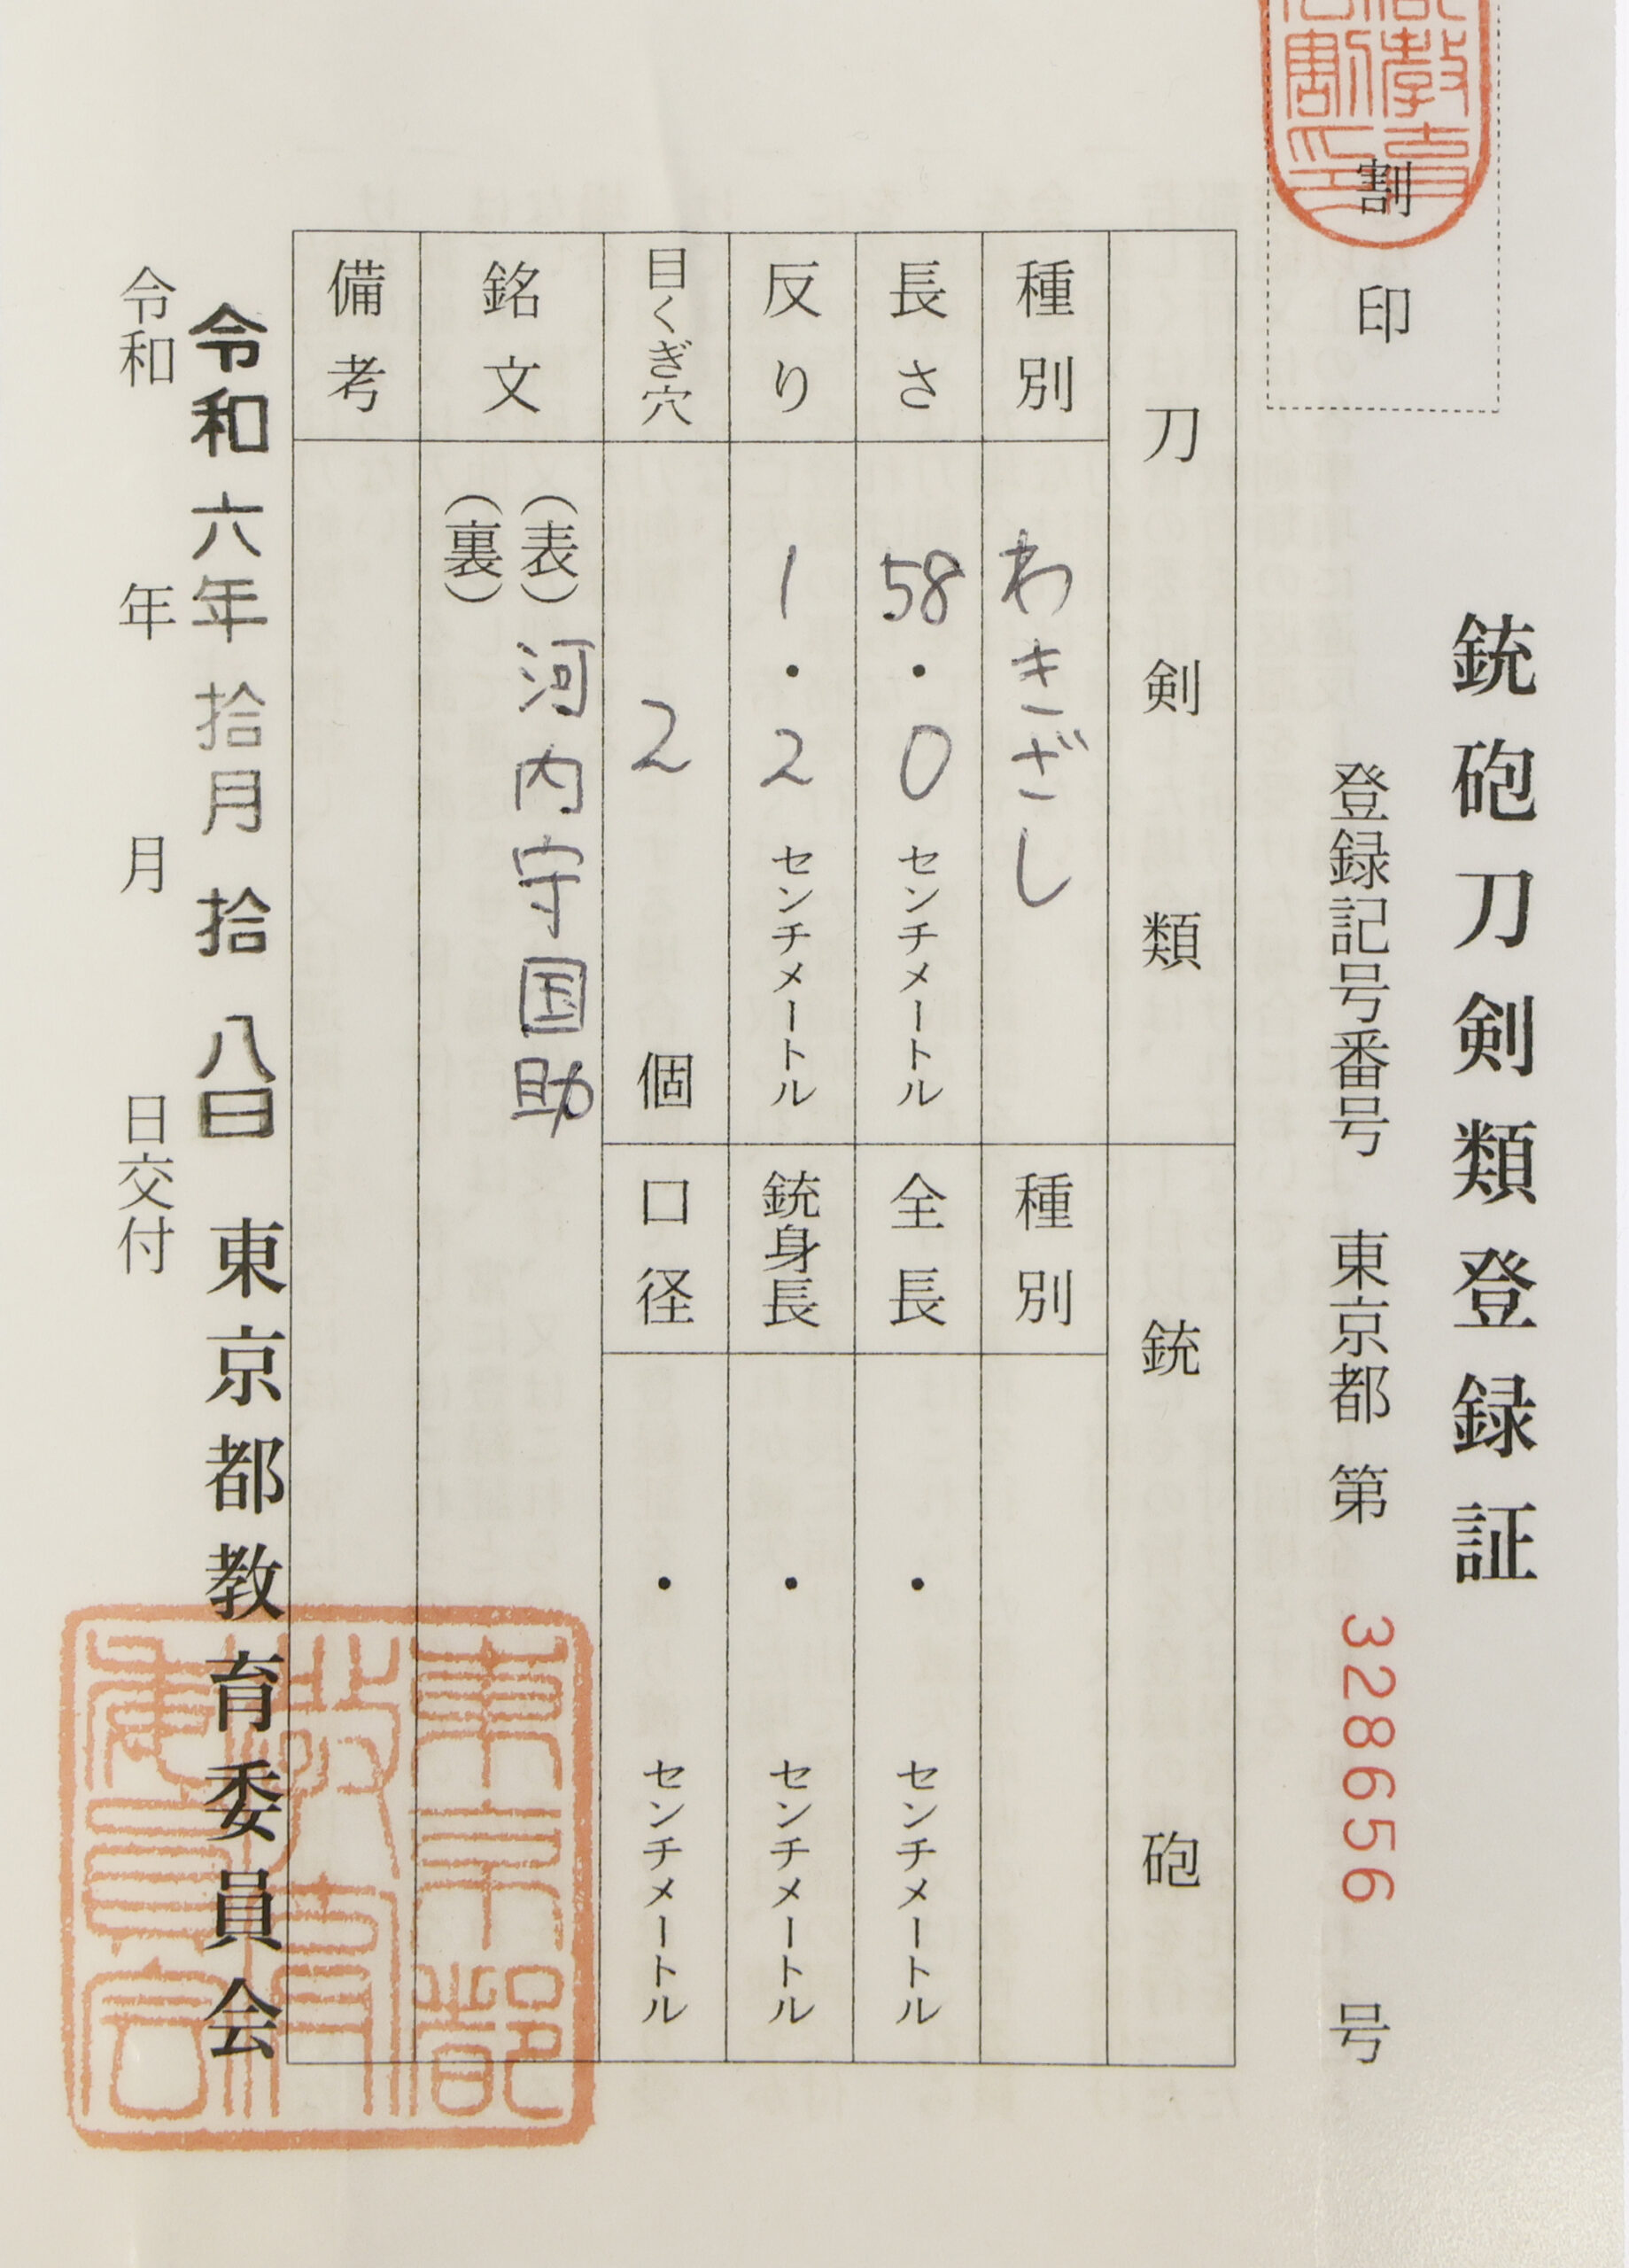 割印
銃砲刀剣類登録証
登録記号番号 東京都 第 328656 号
刀剣類
銃砲
種別
わきざし
種別
長さ
58・0センチメートル
全長
・ センチメートル
反り
1・2センチメートル
銃身長
・ センチメートル
目くぎ穴
2 個
口径
・ センチメートル
銘文
(表)河内守国助
(裏)
備考
令和六年拾月拾八日 東京都教育委員会
令和 年 月 日交付